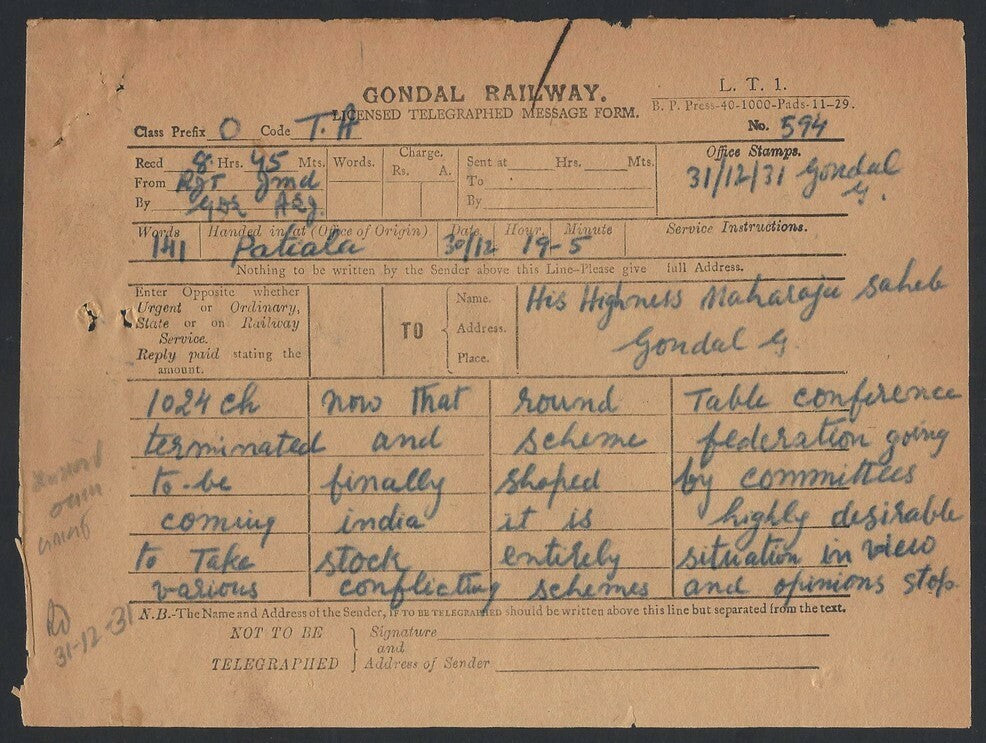 GONDAL RAILWAY.
LICENSED TELEGRAPHED MESSAGE FORM.
L. T. 1.
B. P. Press-40-1000-Pads-11-29.
Class Prefix O Code T. A
No. 594
Recd 8 Hrs. 45 Mts.
From Rjt Jmd
By
Words.
Charge.
Rs. A.
Sent at Hrs. Mts.
To
By
Office Stamps.
31/12/31 Gondal
G.
Words Handed in at (Office of Origin) Date Hour, Minute Service Instructions.
141 Patiala 30/12 19-5
Nothing to be written by the Sender above this Line-Please give full Address.
Enter Opposite whether
Urgent or Ordinary,
State or on Railway
Service.
Reply paid stating the
amount.
TO
Name.
Address.
Place.
His Highness Maharaja Saheb
Gondal G.
1024 ch now that round Table conference
terminated and scheme federation going
to-be finally shaped by committees
coming india it is highly desirable
to Take stock entirely situation in view
various conflicting schemes and opinions stop
N.B.-The Name and Address of the Sender, IF TO BE TELEGRAPHED should be written above this line but separated from the text.
NOT TO BE
TELEGRAPHED
Signature
and
Address of Sender
31-12-31